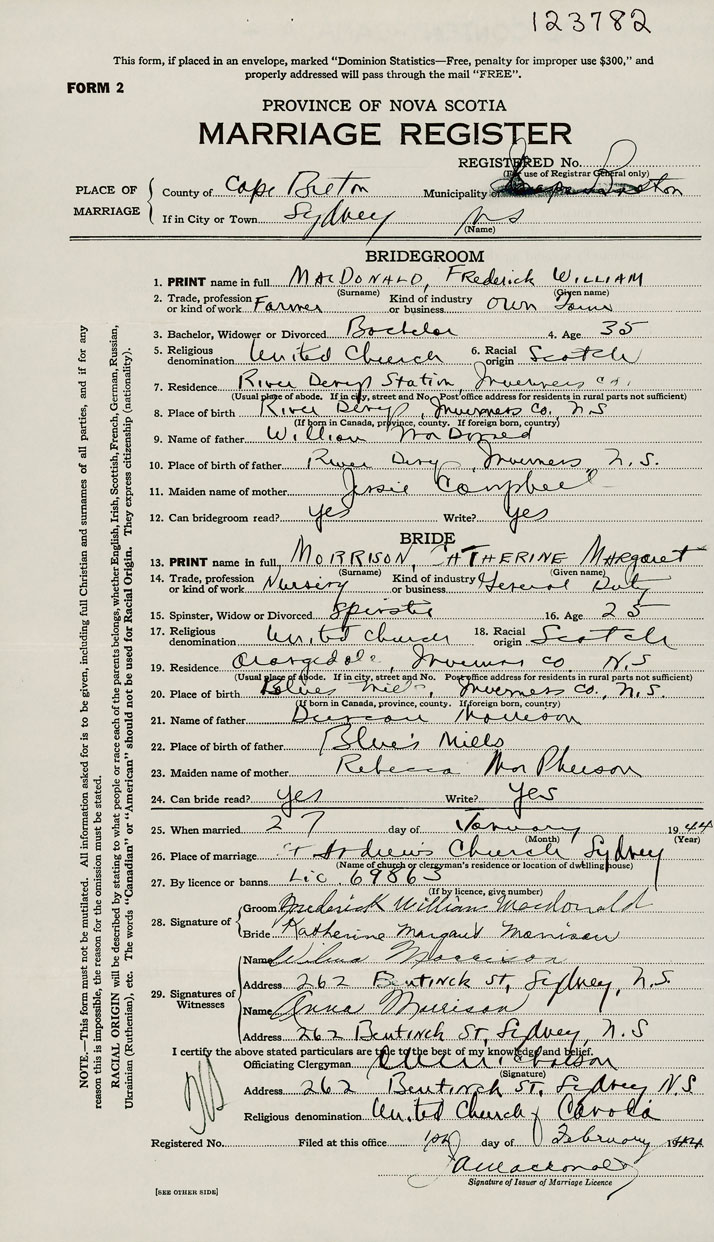 123782
This form, if placed in an envelope, marked "Dominion Statistics—Free, penalty for improper use $300," and
properly addressed will pass through the mail "FREE".
FORM 2
PROVINCE OF NOVA SCOTIA
MARRIAGE REGISTER
REGISTERED No.
(For use of Registrar General only)
PLACE OF MARRIAGE
County of Cape Breton Municipality of
If in City or Town Sydney NS
(Name)
BRIDEGROOM
1. PRINT name in full MACDONALD, Frederick WILLIAM
(Surname) (Given name)
2. Trade, profession or kind of work Farmer Kind of industry or business own Farm
3. Bachelor, Widower or Divorced Bachelor 4. Age 35
5. Religious denomination United Church 6. Racial origin Scotch
7. Residence River Denys Station, Inverness co.
(Usual place of abode. If in city, street and No. Post office address for residents in rural parts not sufficient)
8. Place of birth River Denys, Inverness Co., N.S
(If born in Canada, province, county. If foreign born, country)
9. Name of father William MacDonald
10. Place of birth of father River Denys, Inverness, N.S.
11. Maiden name of mother Jessie Campbell
12. Can bridegroom read? yes Write? yes
BRIDE
13. PRINT name in full MORRISON, CATHERINE MARgaret
(Surname) (Given name)
14. Trade, profession or kind of work Nursery Kind of industry or business General Duty
15. Spinster, Widow or Divorced Spinster 16. Age 25
17. Religious denomination United Church 18. Racial origin Scotch
19. Residence Orangedale, Inverness co. N.S
(Usual place of abode. If in city, street and No. Post office address for residents in rural parts not sufficient)
20. Place of birth Blues Mills, Inverness co., N.S.
(If born in Canada, province, county. If foreign born, country)
21. Name of father Duncan Morrison
22. Place of birth of father Blue's Mills
23. Maiden name of mother Rebecca MacPherson
24. Can bride read? yes Write? Yes
25. When married 27 day of January 1944
(Month) (Year)
26. Place of marriage St Andrews Church Sydney
(Name of church or clergyman's residence or location of dwelling house)
27. By licence or banns Lic. 69863
(If by licence, give number)
28. Signature of
Groom Frederick William Macdonald
Bride Katherine Margaret Morrison
29. Signatures of Witnesses
Name Wilma Morrison
Address 262 Bentinck St, Sydney, N.S.
Name Anna Morrison
Address 262 Bentinck St, Sydney, N.S
I certify the above stated particulars are true to the best of my knowledge and belief.
Officiating Clergyman
(Signature)
Address 262 Bentinck St. Sydney N.S
Religious denomination United Church of Canada
Registered No. Filed at this office 1st day of February 1944
Signature of Issuer of Marriage Licence
[SEE OTHER SIDE]
NOTE.—This form must not be mutilated. All information asked for is to be given, including full Christian and surnames of all parties, and if for any
reason this is impossible, the reason for the omission must be stated.
RACIAL ORIGIN will be described by stating to what people or race each of the parents belongs, whether English, Irish, Scottish, French, German, Russian,
Ukrainian (Ruthenian), etc. The words "Canadian" or "American" should not be used for Racial Origin. They express citizenship (nationality).